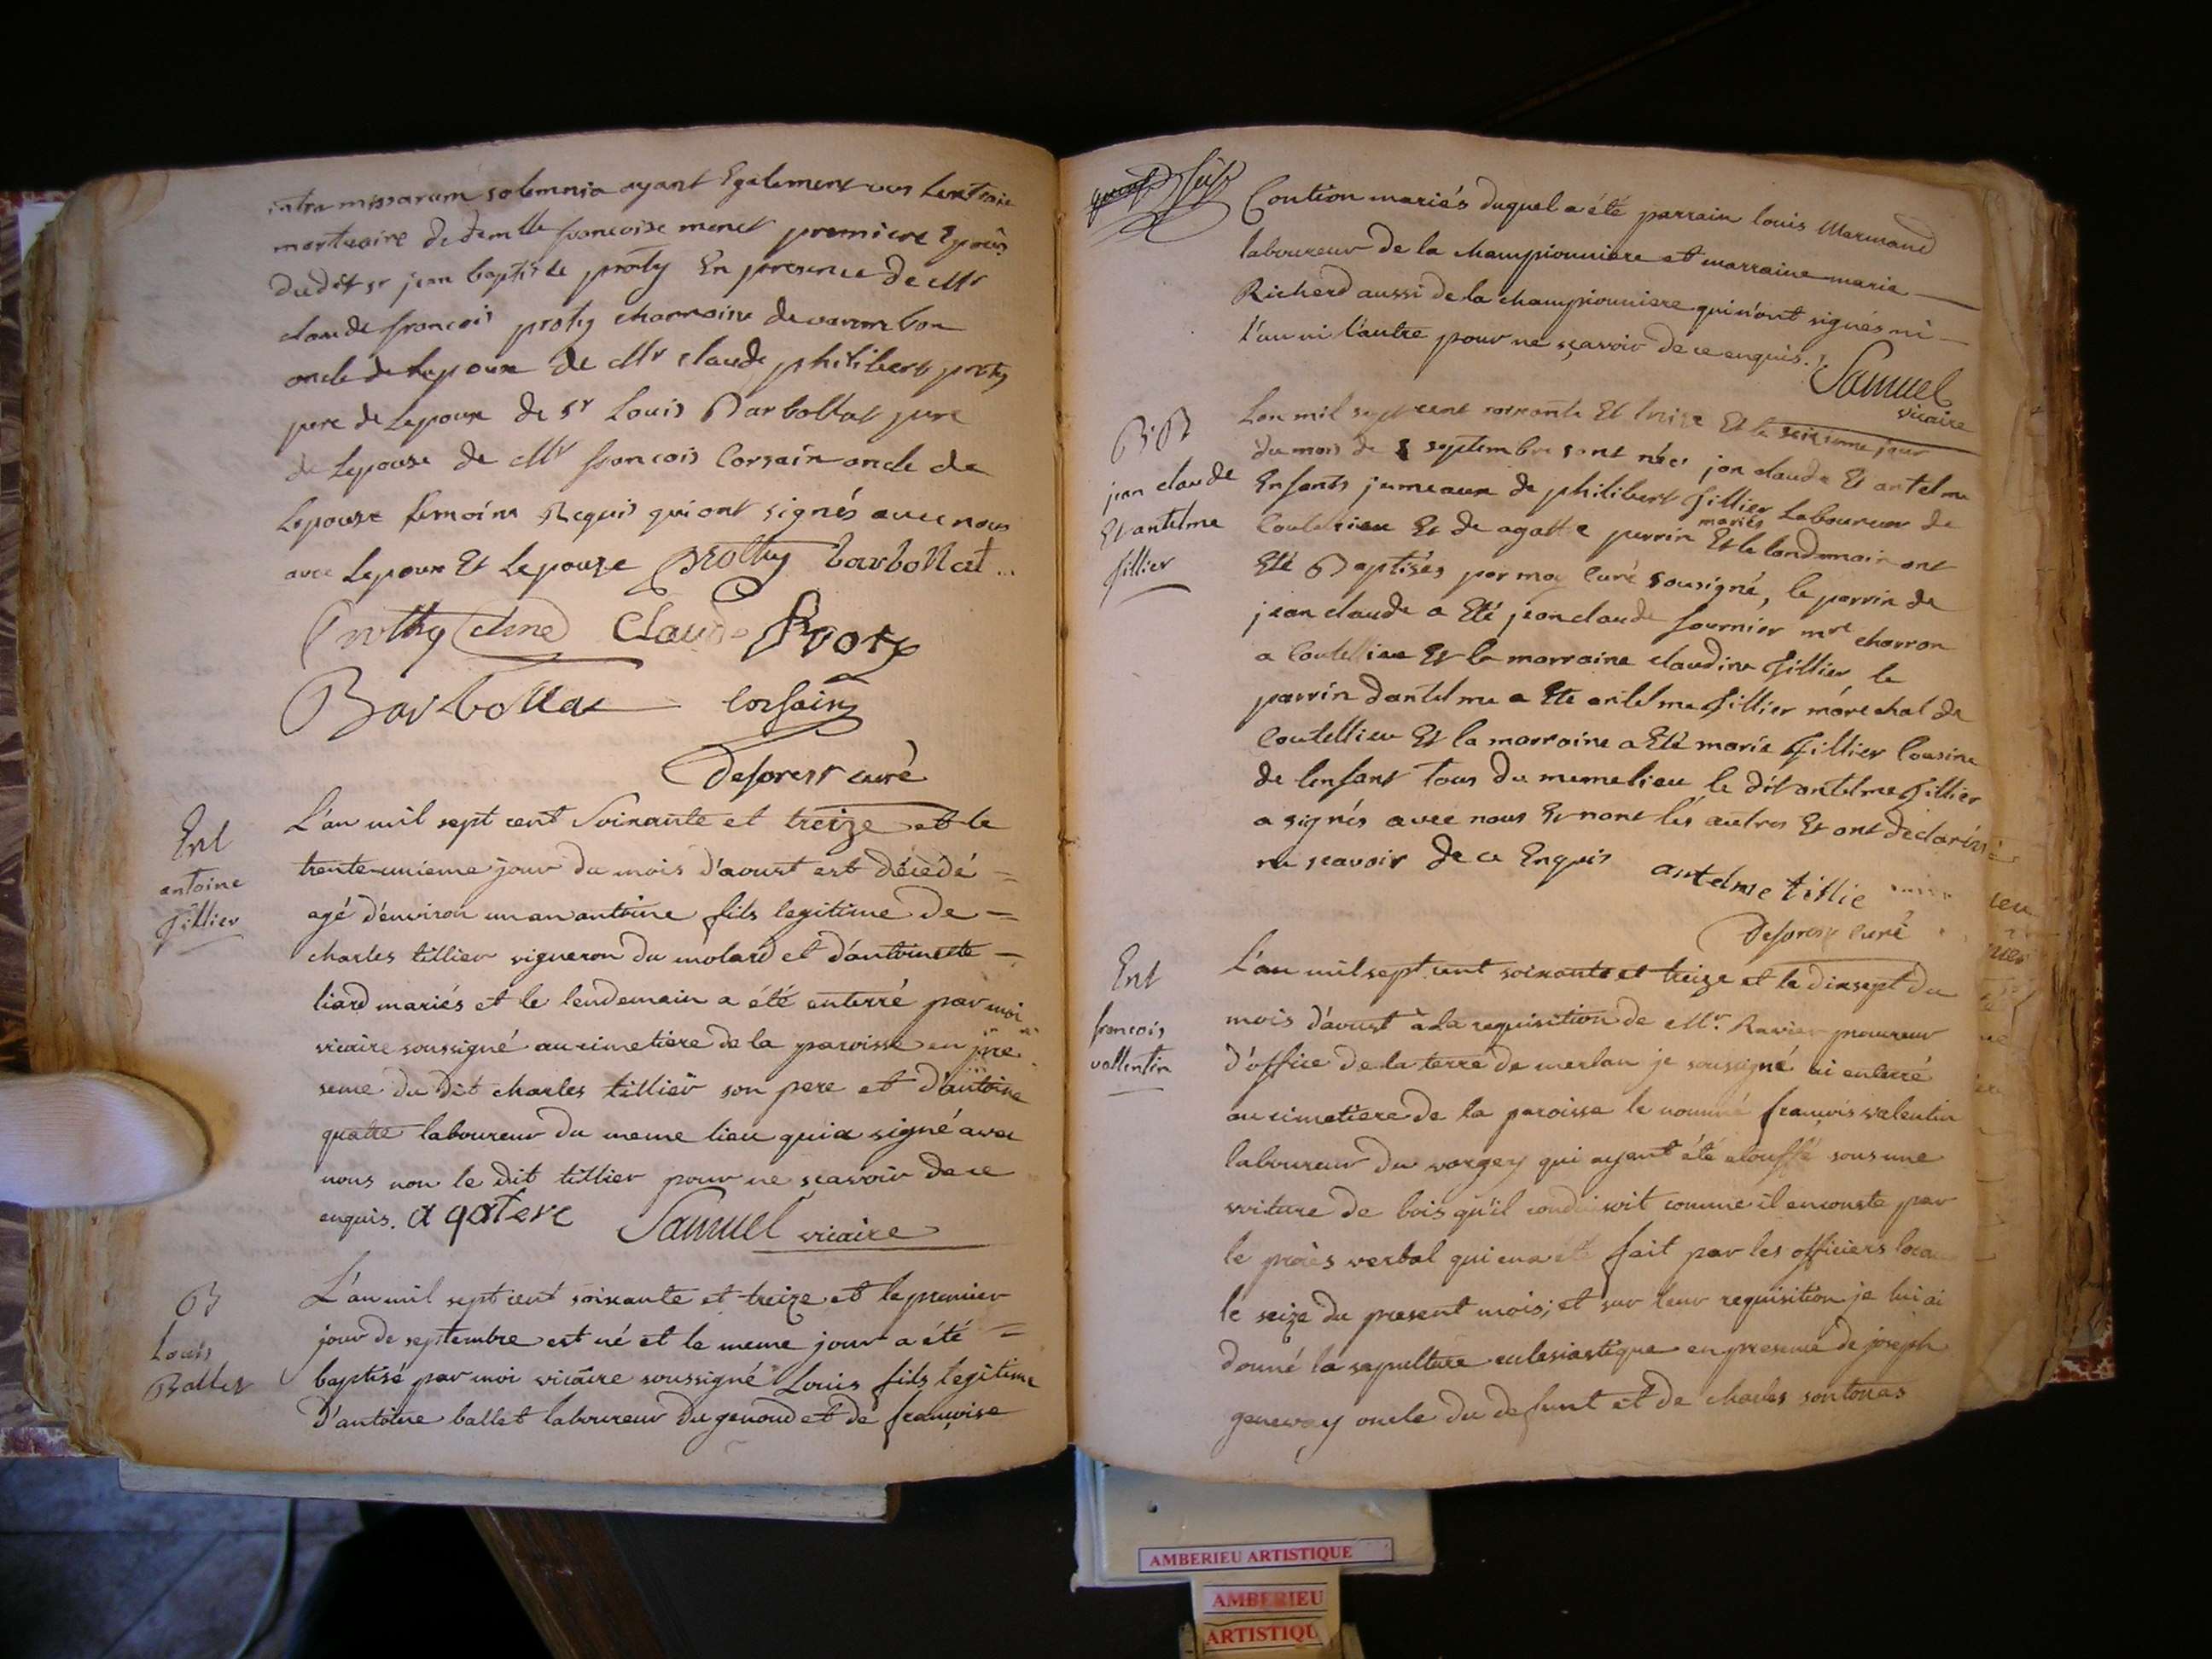 intra missarum solemnia ayant Egalement vus Lextraie
mortuaire de dem.lle francoise monet premiere Epouse
dudit sr jean baptiste proty En presence de Mr
claude francois protty channoine de varembon
oncle de Lepoux de Mr claude philibert proty
pere de Lepoux de sr Louis Barbollat pere
de Lepouse de Mr francois Corsain oncle de
Lepouse temoins Requis qui ont signés avec nous
avec Lepoux Et Lepouse protty barbollat
protty Claude Proty
Barbollat Corsain
Deforest curé
Ent
antoine
tillier
L'an mil sept cent Soixante et treize et le
trente-unieme jour du mois d'aoust est décédé
agé d'environ un an antoine fils legitime de
charles tillier vigneron du molard et d'antoinette
liard mariés et le lendemain a été enterré par moi
vicaire soussigné au cimetiere de la paroisse en pre
sence du dit charles tillier son pere et d'antoine
quatre laboureur du meme lieu qui a signé avec
nous non le dit tillier pour ne sçavoir de ce
enquis. a qatere Samuel vicaire
B
Louis
Ballet
L'an mil sept cent soixante et treize et le premier
jour de septembre est né et le meme jour a été
baptisé par moi vicaire soussigné Louis fils legitime
d'antoine ballet laboureur du genoud et de françoise
Coution mariés duquel a été parrain louis Marmand
laboureur de la championniere et marraine marie
Richerd aussi de la championniere qui n'ont signés ni
l'un ni l'autre pour ne sçavoir de ce enquis. Samuel
vicaire
B.B
jean claude
Et antelme
tillier
Lan mil sept cent soixante Et treize Et le seizieme jour
du mois de septembre sont nées jean claude Et antelme
Enfants jumeaux de philibert tillier Laboureur de
Coutellieu Et de agatte perrin mariés Et le landemain ont
Eté Baptisés par moy Curé sousigné, le parrin de
jean claude a Eté jean claude fournier mre charron
a Coutellieu Et la marraine claudine tillier le
parrin dantelme a Ete antelme tillier maréchal de
Coutellieu Et la marraine a Eté marie tillier Cousine
de lenfant tous du meme lieu le dit antelme tillier
a signés avec nous Et nont lés autres Et ont declarés
ne scavoir de ce Enquis antelme tillie
Deforest Curé
Ent
francois
vallentin
L'an mil sept cent soixante et treize et le dixsept du
mois d'aoust à la requisition de Mr. Ravier procureur
d'office de la terre de merlan je soussigné ai enterré
au cimetiere de la paroisse le nommé françois valentin
laboureur du vorgey qui ayant été etouffé sous une
voiture de bois qu'il conduisoit comme il en conste par
le procès verbal qui en a été fait par les officiers locaux
le seize du present mois; et sur leur requisition je lui ai
donné la sepulture eclesiastique en presence de joseph
genevay oncle du defunt et de charles sontonas
AMBERIEU ARTISTIQUE
AMBERIEU
ARTISTIQU